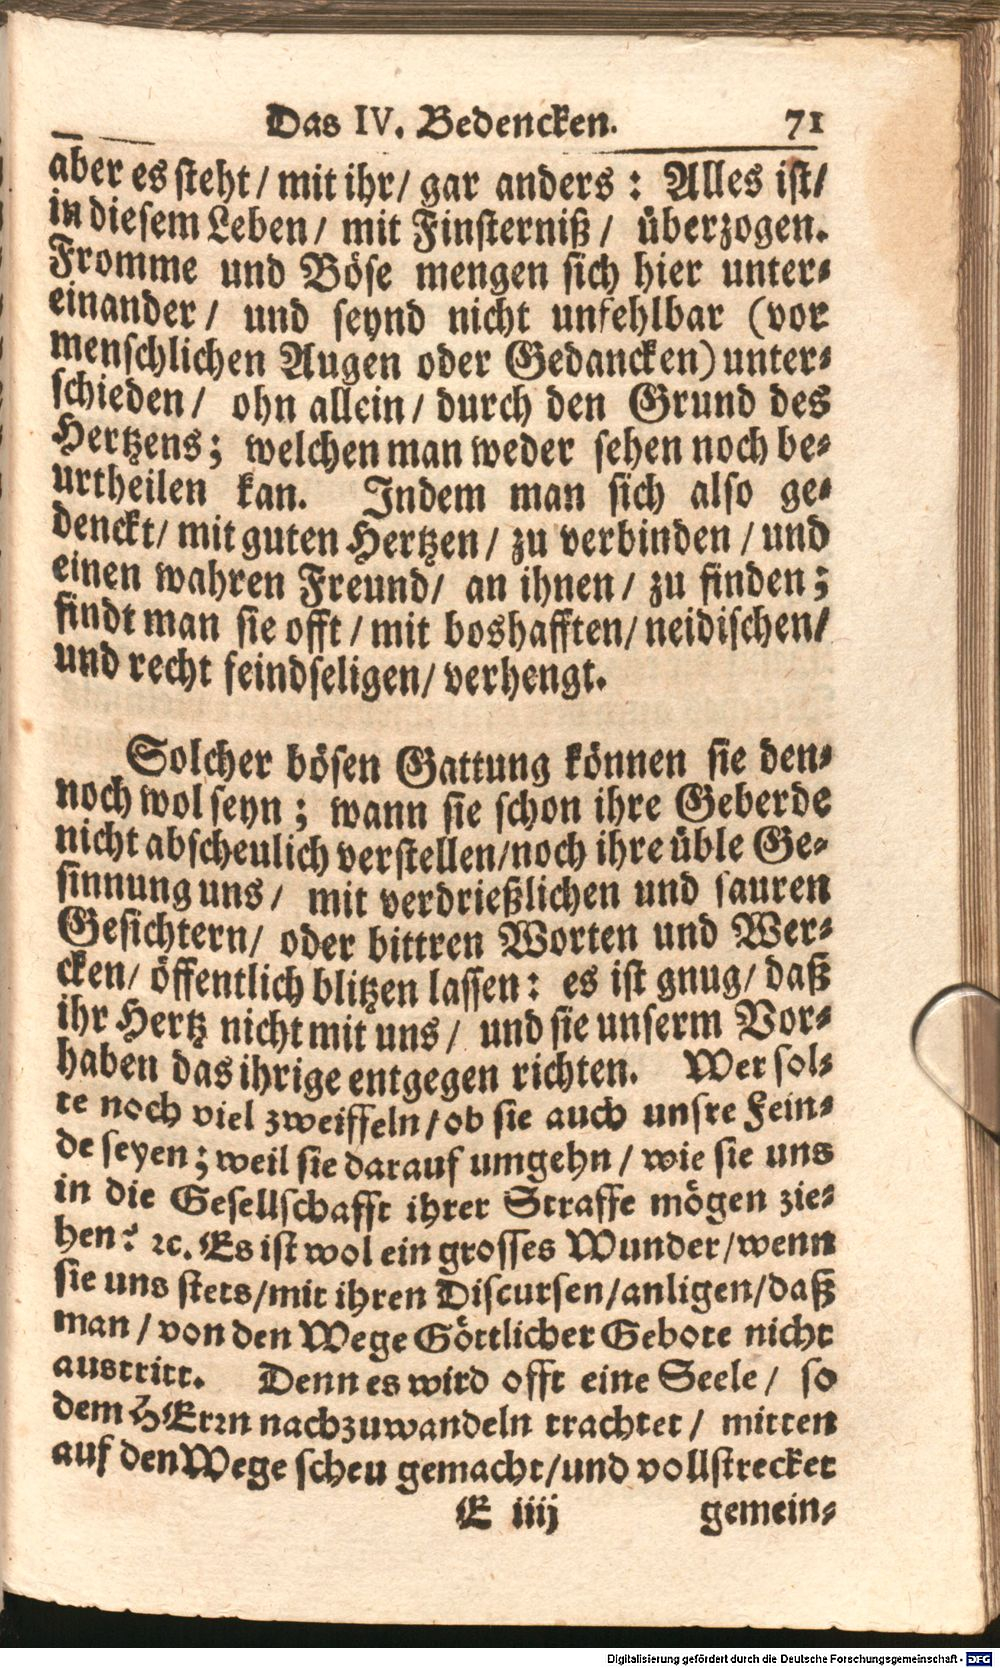 Das IV. Bedencken. 71
aber es steht / mit ihr / gar anders : Alles ist /
in diesem Leben / mit Finsterniß / überzogen.
Fromme und Böse mengen sich hier unter-
einander / und seynd nicht unfehlbar (vor
menschlichen Augen oder Gedancken) unter-
schieden / ohn allein / durch den Grund des
Hertzens; welchen man weder sehen noch be-
urtheilen kan. Indem man sich also ge-
denckt / mit guten Hertzen / zu verbinden / und
einen wahren Freund / an ihnen / zu finden;
findt man sie offt / mit boshafften / neidischen /
und recht feindseligen / verhengt.
Solcher bösen Gattung können sie den-
noch wol seyn; wann sie schon ihre Geberde
nicht abscheulich verstellen / noch ihre üble Ge-
sinnung uns / mit verdrießlichen und sauren
Gesichtern / oder bittren Worten und Wer-
cken / öffentlich blitzen lassen: es ist gnug / daß
ihr Hertz nicht mit uns / und sie unserm Vor-
haben das ihrige entgegen richten. Wer sol-
te noch viel zweiffeln / ob sie auch unsre Fein-
de seyen; weil sie darauf umgehn / wie sie uns
in die Gesellschafft ihrer Straffe mögen zie-
hen? ꝛc. Es ist wol ein grosses Wunder / wenn
sie uns stets / mit ihren Discursen / anligen / daß
man / von den Wege Göttlicher Gebote nicht
austritt. Denn es wird offt eine Seele / so
dem HErrn nachzuwandeln trachtet / mitten
auf den Wege scheu gemacht / und vollstrecket
E iiij gemein-
Digitalisierung gefördert durch die Deutsche Forschungsgemeinschaft - DFG